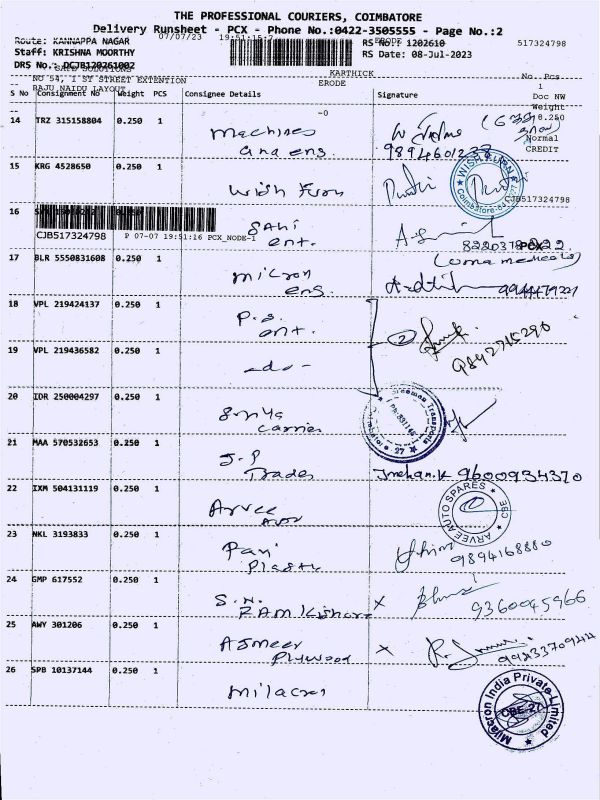 THE PROFESSIONAL COURIERS, COIMBATORE
Delivery Runsheet - PCX - Phone No.:0422-3505555 - Page No.:2
Route: KANNAPPA NAGAR 07/07/23 19:51:15 RS No.: 1202610 ERODE 517324798
Staff: KRISHNA MOORTHY RS Date: 08-Jul-2023
DRS No.: DCJB120261002
SAFE SOLUTIONS KARTHICK
NO 54, 1 ST STREET EXTENTION ERODE No. Pcs
RAJU NAIDU LAYOUT 1
S No Consignment No Weight PCS Consignee Details Signature Doc NW
Weight
-0
14 TRZ 315158804 0.250 1 Machines and eng. 9894601237
0.250
Normal
CREDIT
15 KRG 4528650 0.250 1 Wish Furn
WISH FURN
Coimbatore
CJB517324798
16 Sani ent. 8220378222
CJB517324798 P 07-07 19:51:26 PCX_NODE-1 PCX
17 BLR 5550831608 0.250 1 micron eng. (uma medicals)
18 VPL 219424137 0.250 1 P.S. ent. 2 9842715290
19 VPL 219436582 0.250 1 -do-
20 IDR 250004297 0.250 1 Surya Carrier
Transports
27
21 MAA 570532653 0.250 1 J.P Trades Jmohan.k 9600934370
22 IXM 504131119 0.250 1 Arvee Auto
ARVEE AUTO SPARES CBE
23 NKL 3193833 0.250 1 Pavi Plastic 9894168880
24 GMP 617552 0.250 1 S.N. RAMKishore x 9360045966
25 AWY 301206 0.250 1 AJmeer Plywood x
26 SPB 10137144 0.250 1 Milacron
Milacron India Private Limited
CBE-27